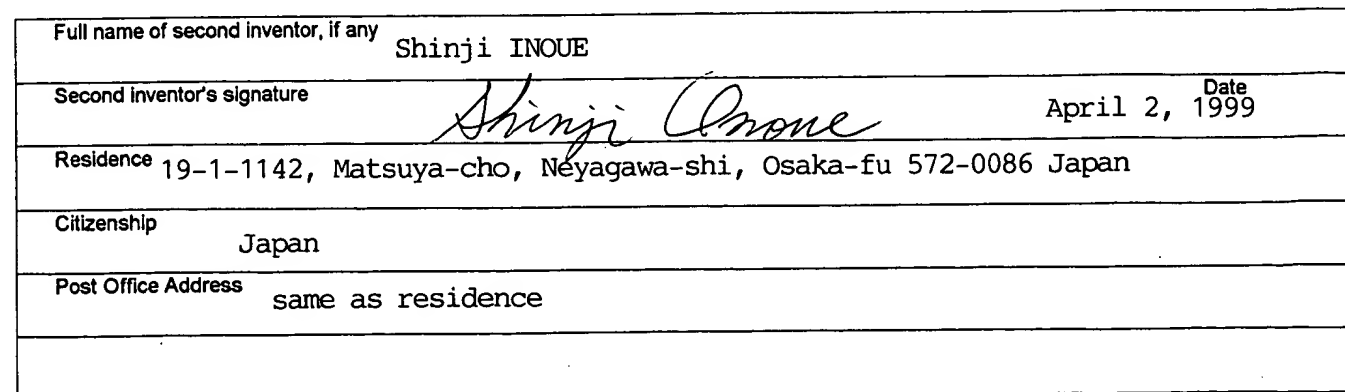 Full name of second inventor, if any Shinji INOUE
Second inventor's signature Shinji Inoue April 2, 1999 Date
Residence 19-1-1142, Matsuya-cho, Neyagawa-shi, Osaka-fu 572-0086 Japan
Citizenship Japan
Post Office Address same as residence